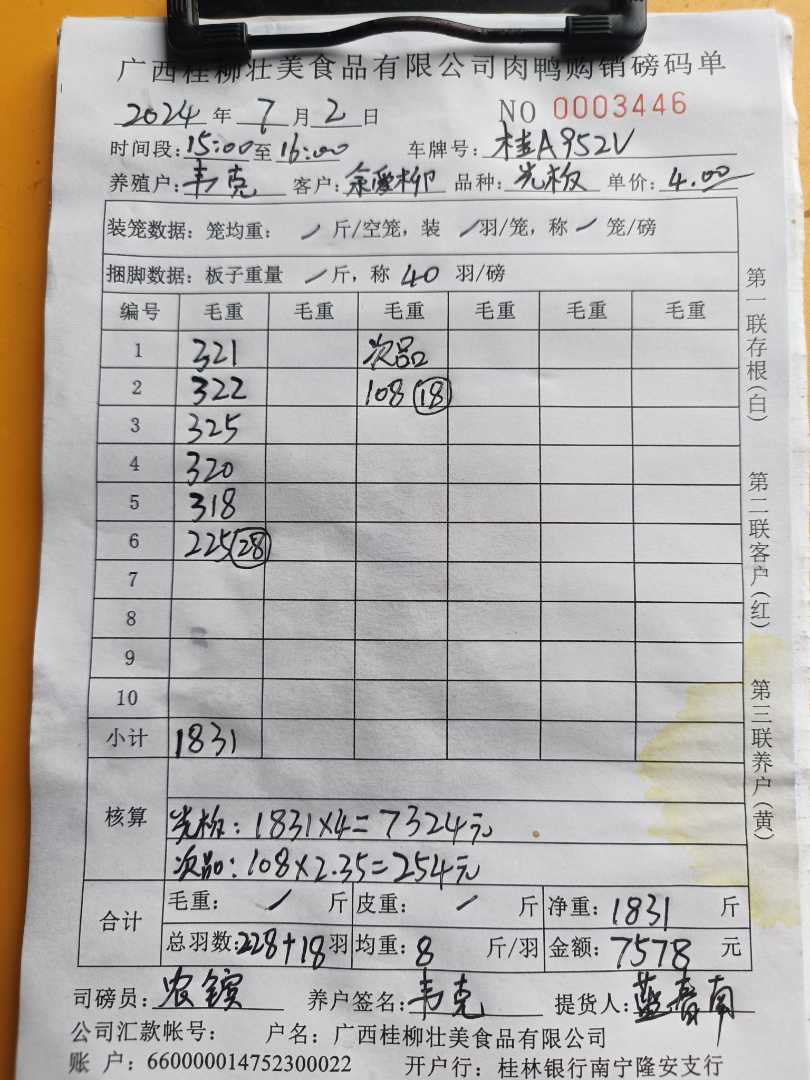 广西桂柳壮美食品有限公司肉鸭购销磅码单
2024年7月2日 NO 0003446
时间段:15:00至16:00 车牌号:桂A952V
养殖户:韦克 客户:余爱柳 品种:光板 单价:4.00
装笼数据:笼均重:/斤/空笼,装/羽/笼,称/笼/磅
捆脚数据:板子重量/斤,称40羽/磅
编号 毛重 毛重 毛重 毛重 毛重 毛重
1 321 次品
2 322 108 18
3 325
4 320
5 318
6 225 28
7
8
9
10
小计 1831
核算
光板:1831×4=7324元
次品:108×2.35=254元
合计
毛重:/斤 皮重:/斤 净重:1831斤
总羽数:228+18羽 均重:8斤/羽 金额:7578元
司磅员:农镔 养户签名:韦克 提货人:蓝春南
公司汇款帐号: 户名:广西桂柳壮美食品有限公司
账 户:660000014752300022 开户行:桂林银行南宁隆安支行
第一联存根(白)
第二联客户(红)
第三联养户(黄)